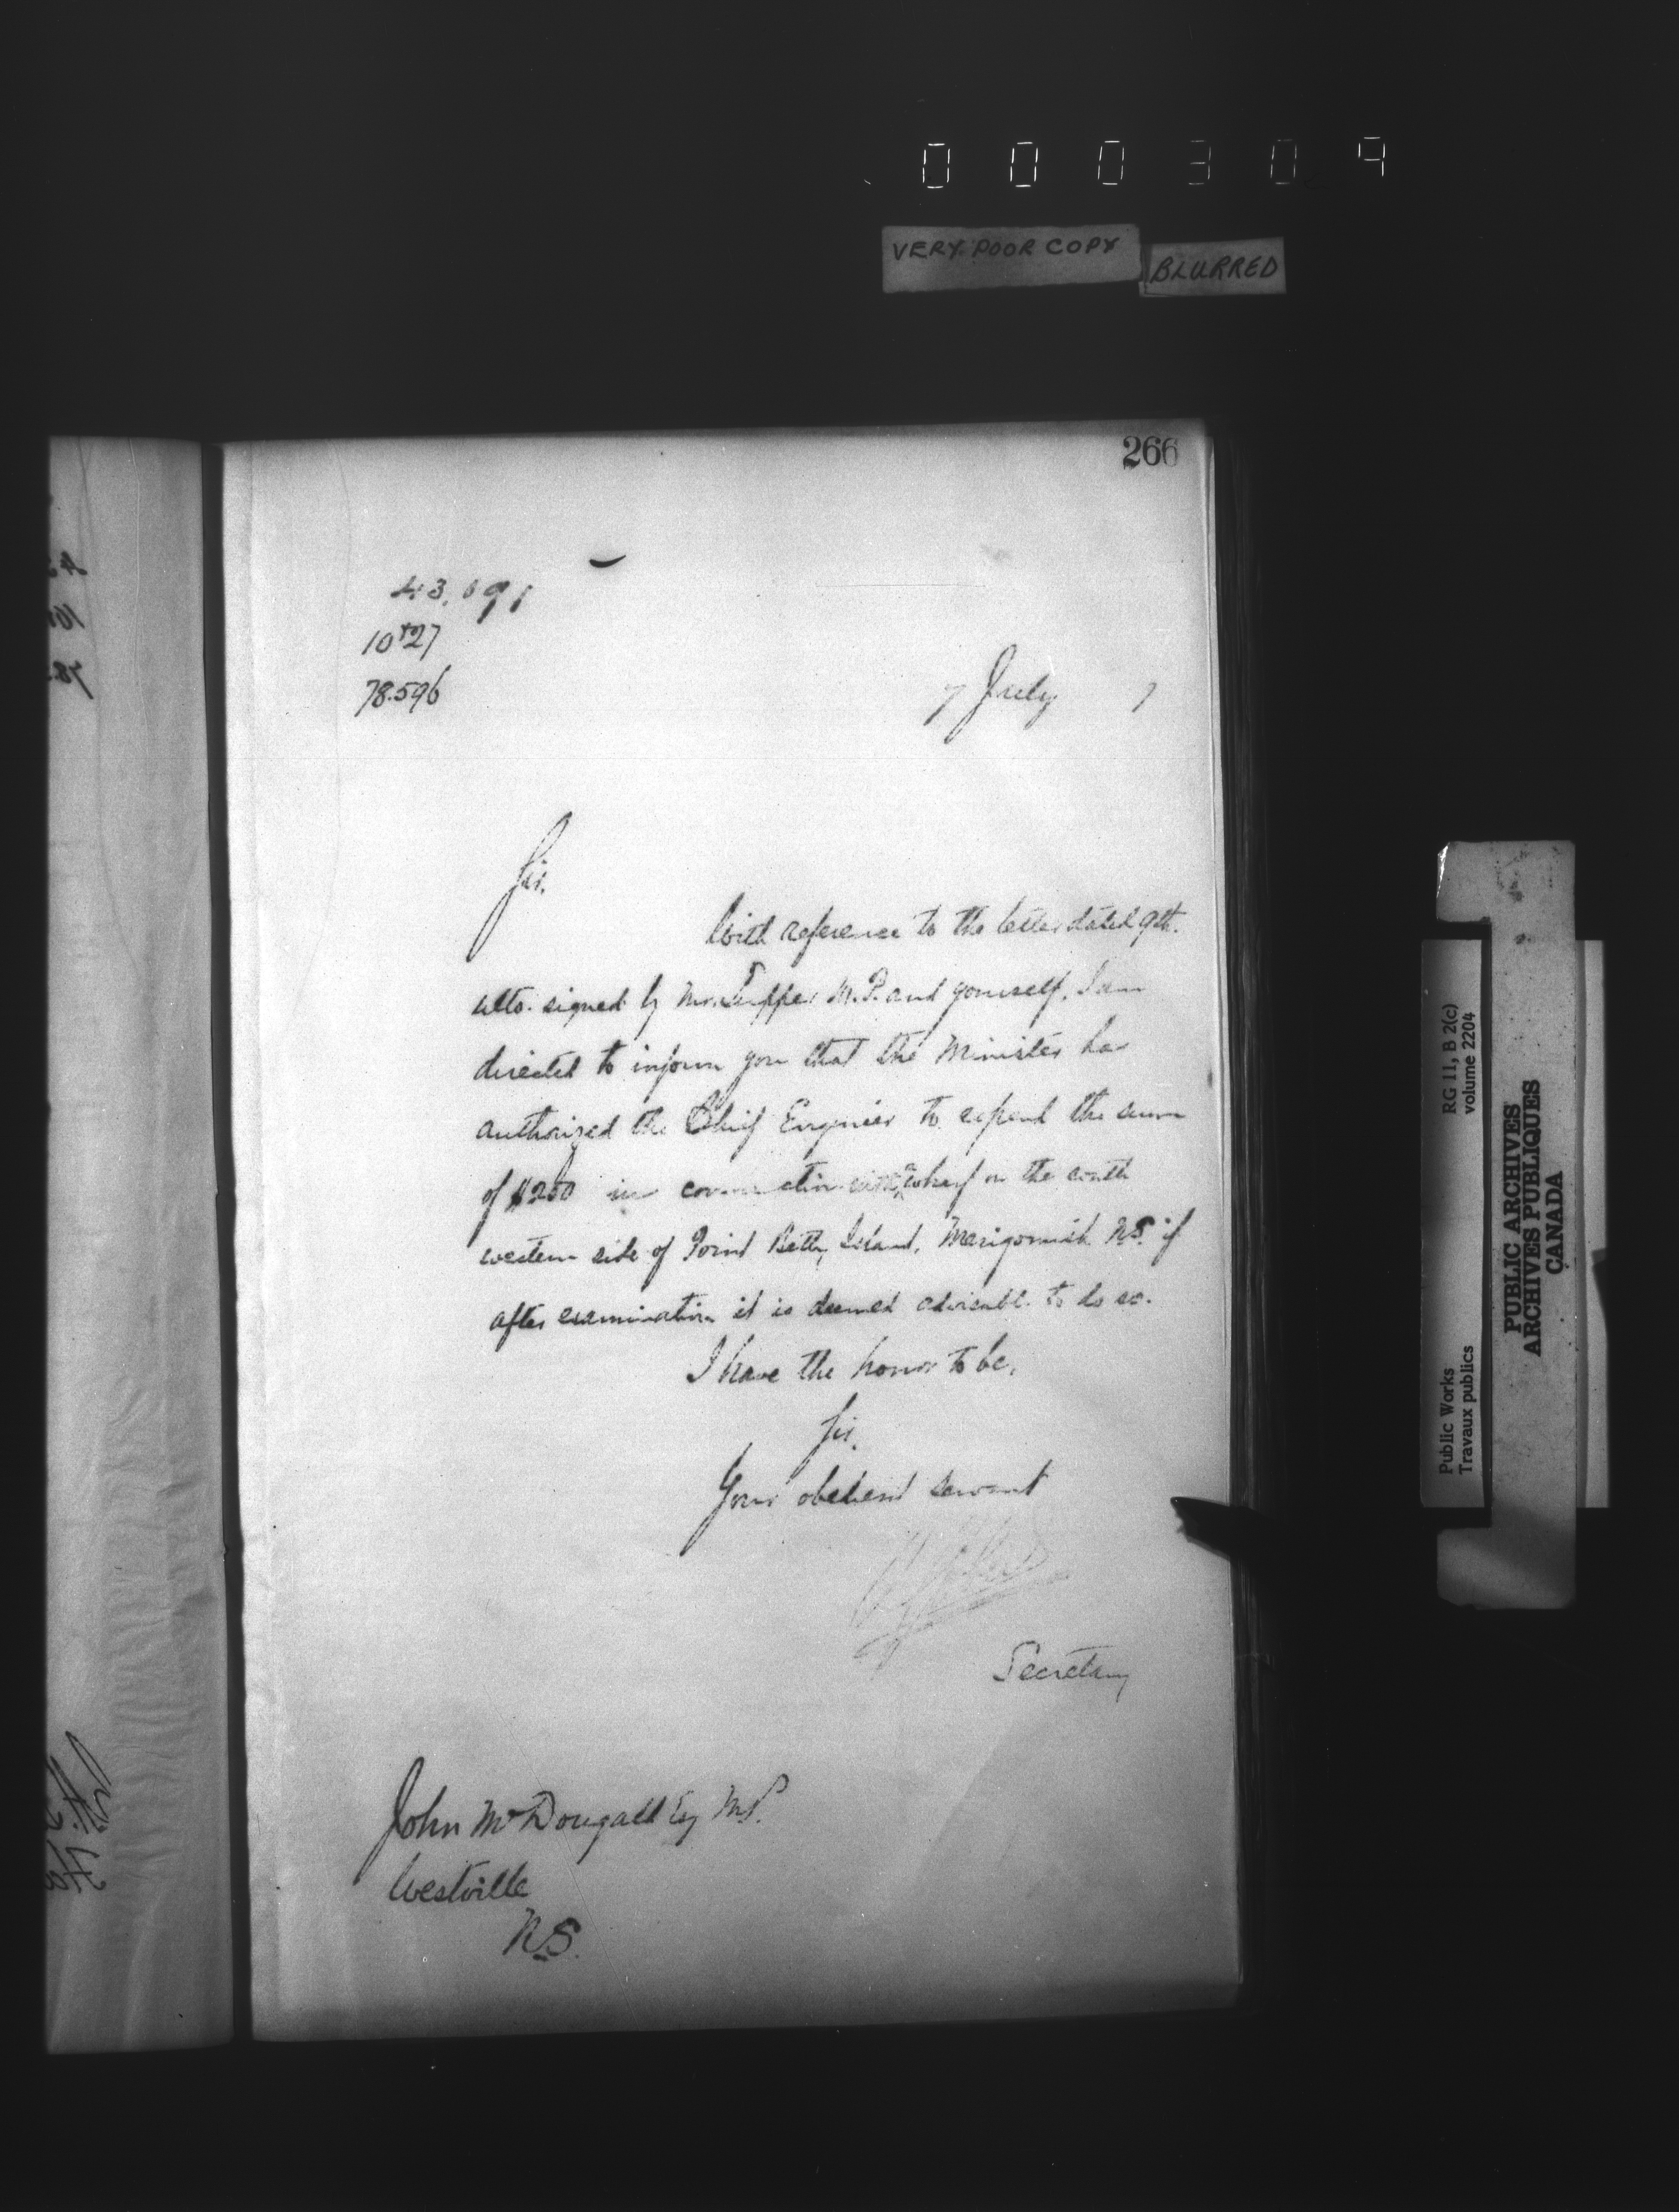 000309
VERY POOR COPY
BLURRED
266
43.091
10+27
78.596
7 July 7
Sir,
With reference to the letter dated 9th.
ulto. signed by Mr. Tupper M.P. and yourself, I am
directed to inform you that the Minister has
authorized the Chief Engineer to expend the sum
of $200 in connection with a wharf on the south
western side of Point Betty Island, Merigomish N.S. if
after examination it is deemed advisable to do so.
I have the honor to be,
Sir,
Your obedient servant
Secretary
John McDougall Esq M.P.
Westville
N.S.
RG 11, B 2(c)
volume 2204
Public Works
Travaux publics
PUBLIC ARCHIVES
ARCHIVES PUBLIQUES
CANADA